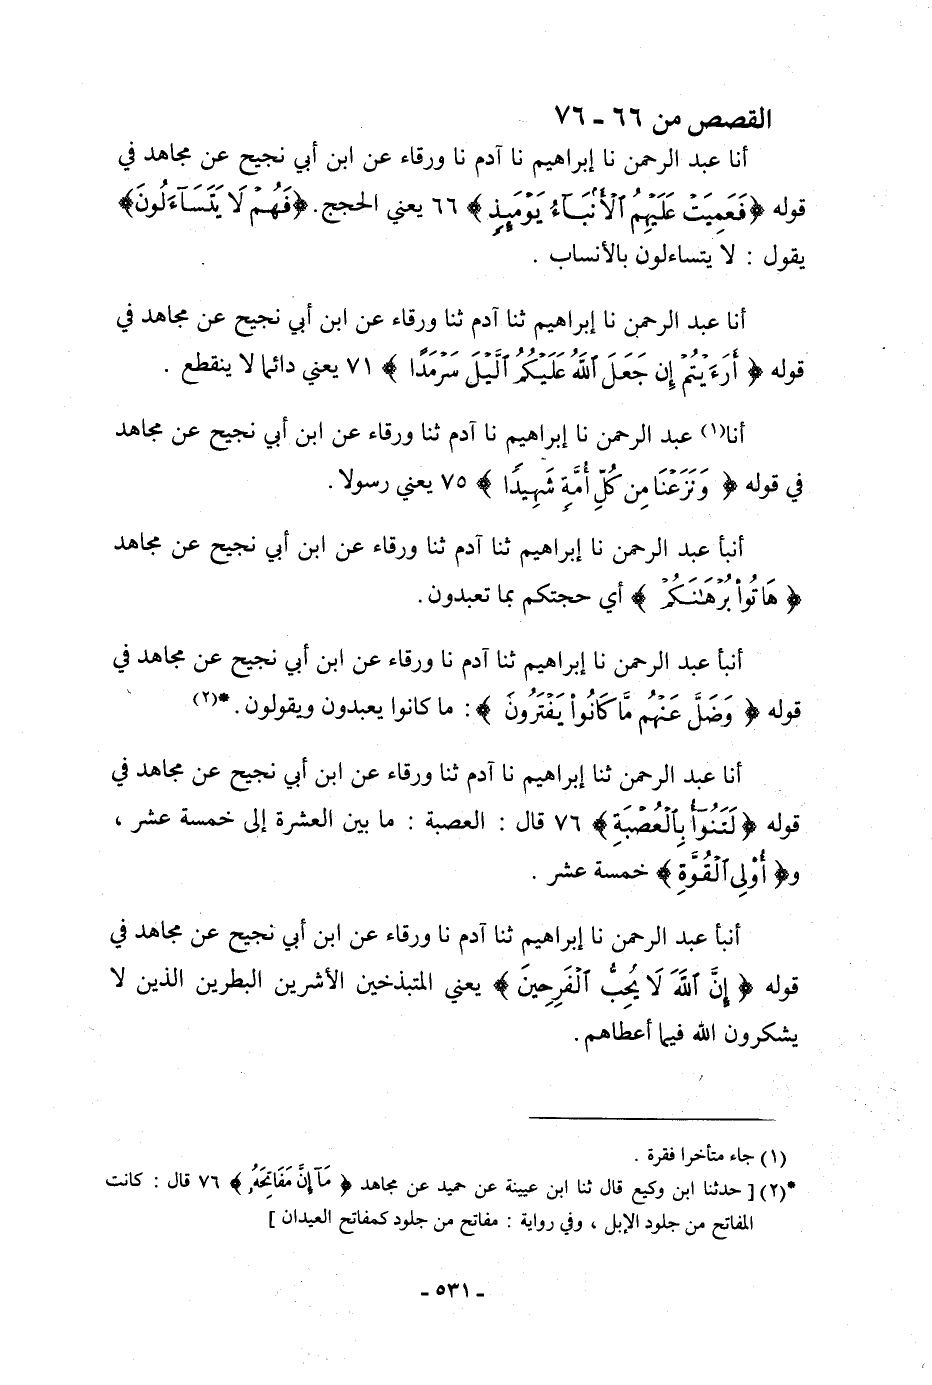 القصص من ٦٦ - ٧٦
أنا عبد الرحمن نا إبراهيم نا آدم نا ورقاء عن ابن أبي نجيح عن مجاهد في
قوله ﴿ فَعَمِيَتْ عَلَيْهِمُ ٱلْأَنۢبَآءُ يَوْمَئِذٍ ﴾ ٦٦ يعني الحجج . ﴿فَهُمْ لَا يَتَسَآءَلُونَ﴾
يقول : لا يتساءلون بالأنساب .
أنا عبد الرحمن نا إبراهيم ثنا آدم ثنا ورقاء عن ابن أبي نجيح عن مجاهد في
قوله ﴿ أَرَءَيْتُمْ إِن جَعَلَ ٱللَّهُ عَلَيْكُمُ ٱلَّيْلَ سَرْمَدًا ﴾ ٧١ يعني دائما لا ينقطع .
أنا(١) عبد الرحمن نا إبراهيم نا آدم ثنا ورقاء عن ابن أبي نجيح عن مجاهد
في قوله ﴿ وَنَزَعْنَا مِن كُلِّ أُمَّةٍ شَهِيدًا ﴾ ٧٥ يعني رسولا .
أنبأ عبد الرحمن نا إبراهيم ثنا آدم ثنا ورقاء عن ابن أبي نجيح عن مجاهد
﴿ هَاتُوا۟ بُرْهَـٰنَكُمْ ﴾ أي حجتكم بما تعبدون .
أنبأ عبد الرحمن نا إبراهيم ثنا آدم نا ورقاء عن ابن أبي نجيح عن مجاهد في
قوله ﴿ وَضَلَّ عَنْهُم مَّا كَانُوا۟ يَفْتَرُونَ ﴾ : ما كانوا يعبدون ويقولون . *(٢)
أنا عبد الرحمن ثنا إبراهيم نا آدم ثنا ورقاء عن ابن أبي نجيح عن مجاهد في
قوله ﴿ لَتَنُوٓأُ بِٱلْعُصْبَةِ ﴾ ٧٦ قال : العصبة : ما بين العشرة إلى خمسة عشر ،
و﴿ أُو۟لِى ٱلْقُوَّةِ ﴾ خمسة عشر .
أنبأ عبد الرحمن نا إبراهيم ثنا آدم نا ورقاء عن ابن أبي نجيح عن مجاهد في
قوله ﴿ إِنَّ ٱللَّهَ لَا يُحِبُّ ٱلْفَرِحِينَ ﴾ يعني المتبذخين الأشرين البطرين الذين لا
يشكرون الله فيما أعطاهم .
(١) جاء متأخرا فقرة .
*(٢) [ حدثنا ابن وكيع قال ثنا ابن عيينة عن حميد عن مجاهد ﴿ مَآ إِنَّ مَفَاتِحَهُۥ ﴾ ٧٦ قال : كانت
المفاتح من جلود الإبل ، وفي رواية : مفاتح من جلود كمفاتح العيدان ]
- ٥٣١ -